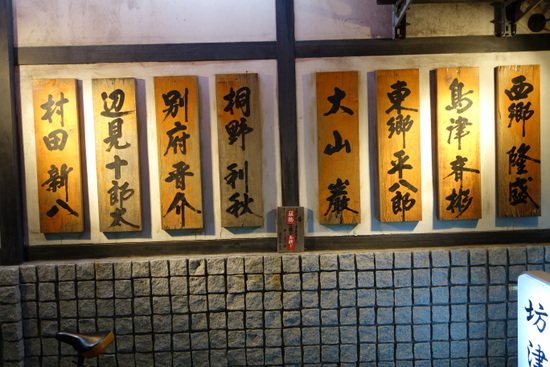 西郷隆盛
島津斉彬
東郷平八郎
大山巌
桐野利秋
別府晋介
辺見十郎太
村田新八
坊津